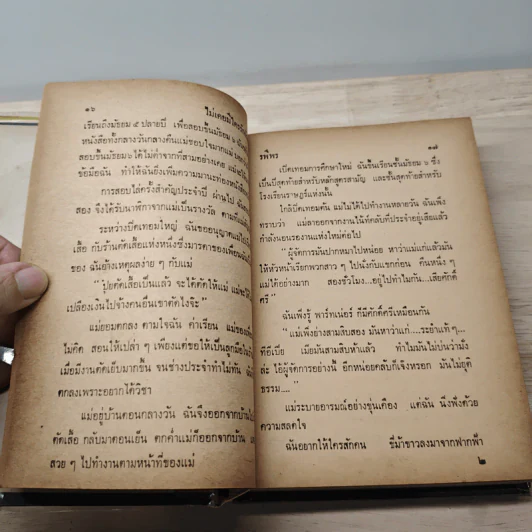 ๑๖
ไม่เคยมีใคร
เรียนถึงมัธยม ๕ ปลายปี เพื่อสอบขึ้นมัธยม ๖
หนังสือทั้งกลางวันกลางคืนแม่ชอบใจมาก
สอบขึ้นมัธยม ๖ ได้ไม่ต่ำจากที่สามอย่างเคย
ข้อมือฉัน ทำให้ฉันยิ่งเพิ่มความมานะท่องหนังสือ
การสอบไล่ครั้งสำคัญประจำปี ผ่านไป
สอง จึงได้รับนาฬิกาจากแม่เป็นรางวัล ตามที่
ระหว่างปิดเทอมใหญ่ ฉันขออนุญาต
เสื้อ กับร้านตัดเสื้อแห่งหนึ่งซึ่งมารดาของเพื่อน
ของ ฉันอ้างเหตุผลง่าย ๆ กับแม่
"ปุ๋ยตัดเสื้อเป็นแล้ว จะได้ตัดให้แม่ แม่จะ
เปลืองเงินไปจ้างคนอื่นเขาตัดไงจ๊ะ"
แม่ยอมตกลง ตามใจฉัน ค่าเรียน แม่ของ
ไม่คิด สอนให้เปล่า ๆ เพียงแต่ขอให้เป็นลูกมือ
เมื่อมีงานตัดเย็บมากขึ้น จนช่างประจำทำไม่ทัน
ตกลงเพราะอยากได้วิชา
แม่อยู่บ้านตอนกลางวัน ฉันจึงออกจากบ้าน
ตัดเสื้อ กลับมาตอนเย็น ตกค่ำแม่ก็ออกจากบ้าน
สวย ๆ ไปทำงานตามหน้าที่ของแม่
รพีพร
๑๗
เปิดเทอมการศึกษาใหม่ ฉันขึ้นเรียนชั้นมัธยม ๖ ซึ่ง
เป็นปีสุดท้ายสำหรับหลักสูตรสามัญ และชั้นสุดท้ายสำหรับ
โรงเรียนราษฎร์แห่งนั้น
ใกล้ปิดเทอมต้น แม่ไม่ได้ไปทำงานหลายวัน ฉันเพิ่ง
ทราบว่า แม่ลาออกจากงานไนท์คลับที่ประจำอยู่เสียแล้ว
กำลังนอนรองานแห่งใหม่ต่อไป
"ผู้จัดการมันปากหมาไปหน่อย หาว่าแม่แก่แล้วมัน
ให้หัวหน้าเรียกพวกสาว ๆ ไปนั่งกับแขกก่อน คืนหนึ่ง ๆ
แม่ได้อย่างมาก สองชั่วโมง...อยู่ไปทำไมกัน...เสียศักดิ์
ศรี"
ฉันเพิ่งรู้ พาร์ทเน่อร์ ก็มีศักดิ์ศรีเหมือนกัน
"แม่เพิ่งย่างสามสิบสอง มันหาว่าแก่....ระยำแท้ ๆ...
ทีอีเบีย เมียมันสามสิบห้าแล้ว ทำไมมันไม่บ่นว่ามั่ง
ล่ะ ไอ้ผู้จัดการอย่างนี้ อีกหน่อยคลับก็เจ๊งหรอก มันไม่ยุติ
ธรรม...."
แม่ระบายอารมณ์อย่างขุ่นเคือง แต่ฉัน นั่งฟังด้วย
ความสลดใจ
ฉันอยากให้ใครสักคน ขี่ม้าขาวลงมาจากฟากฟ้า
๒